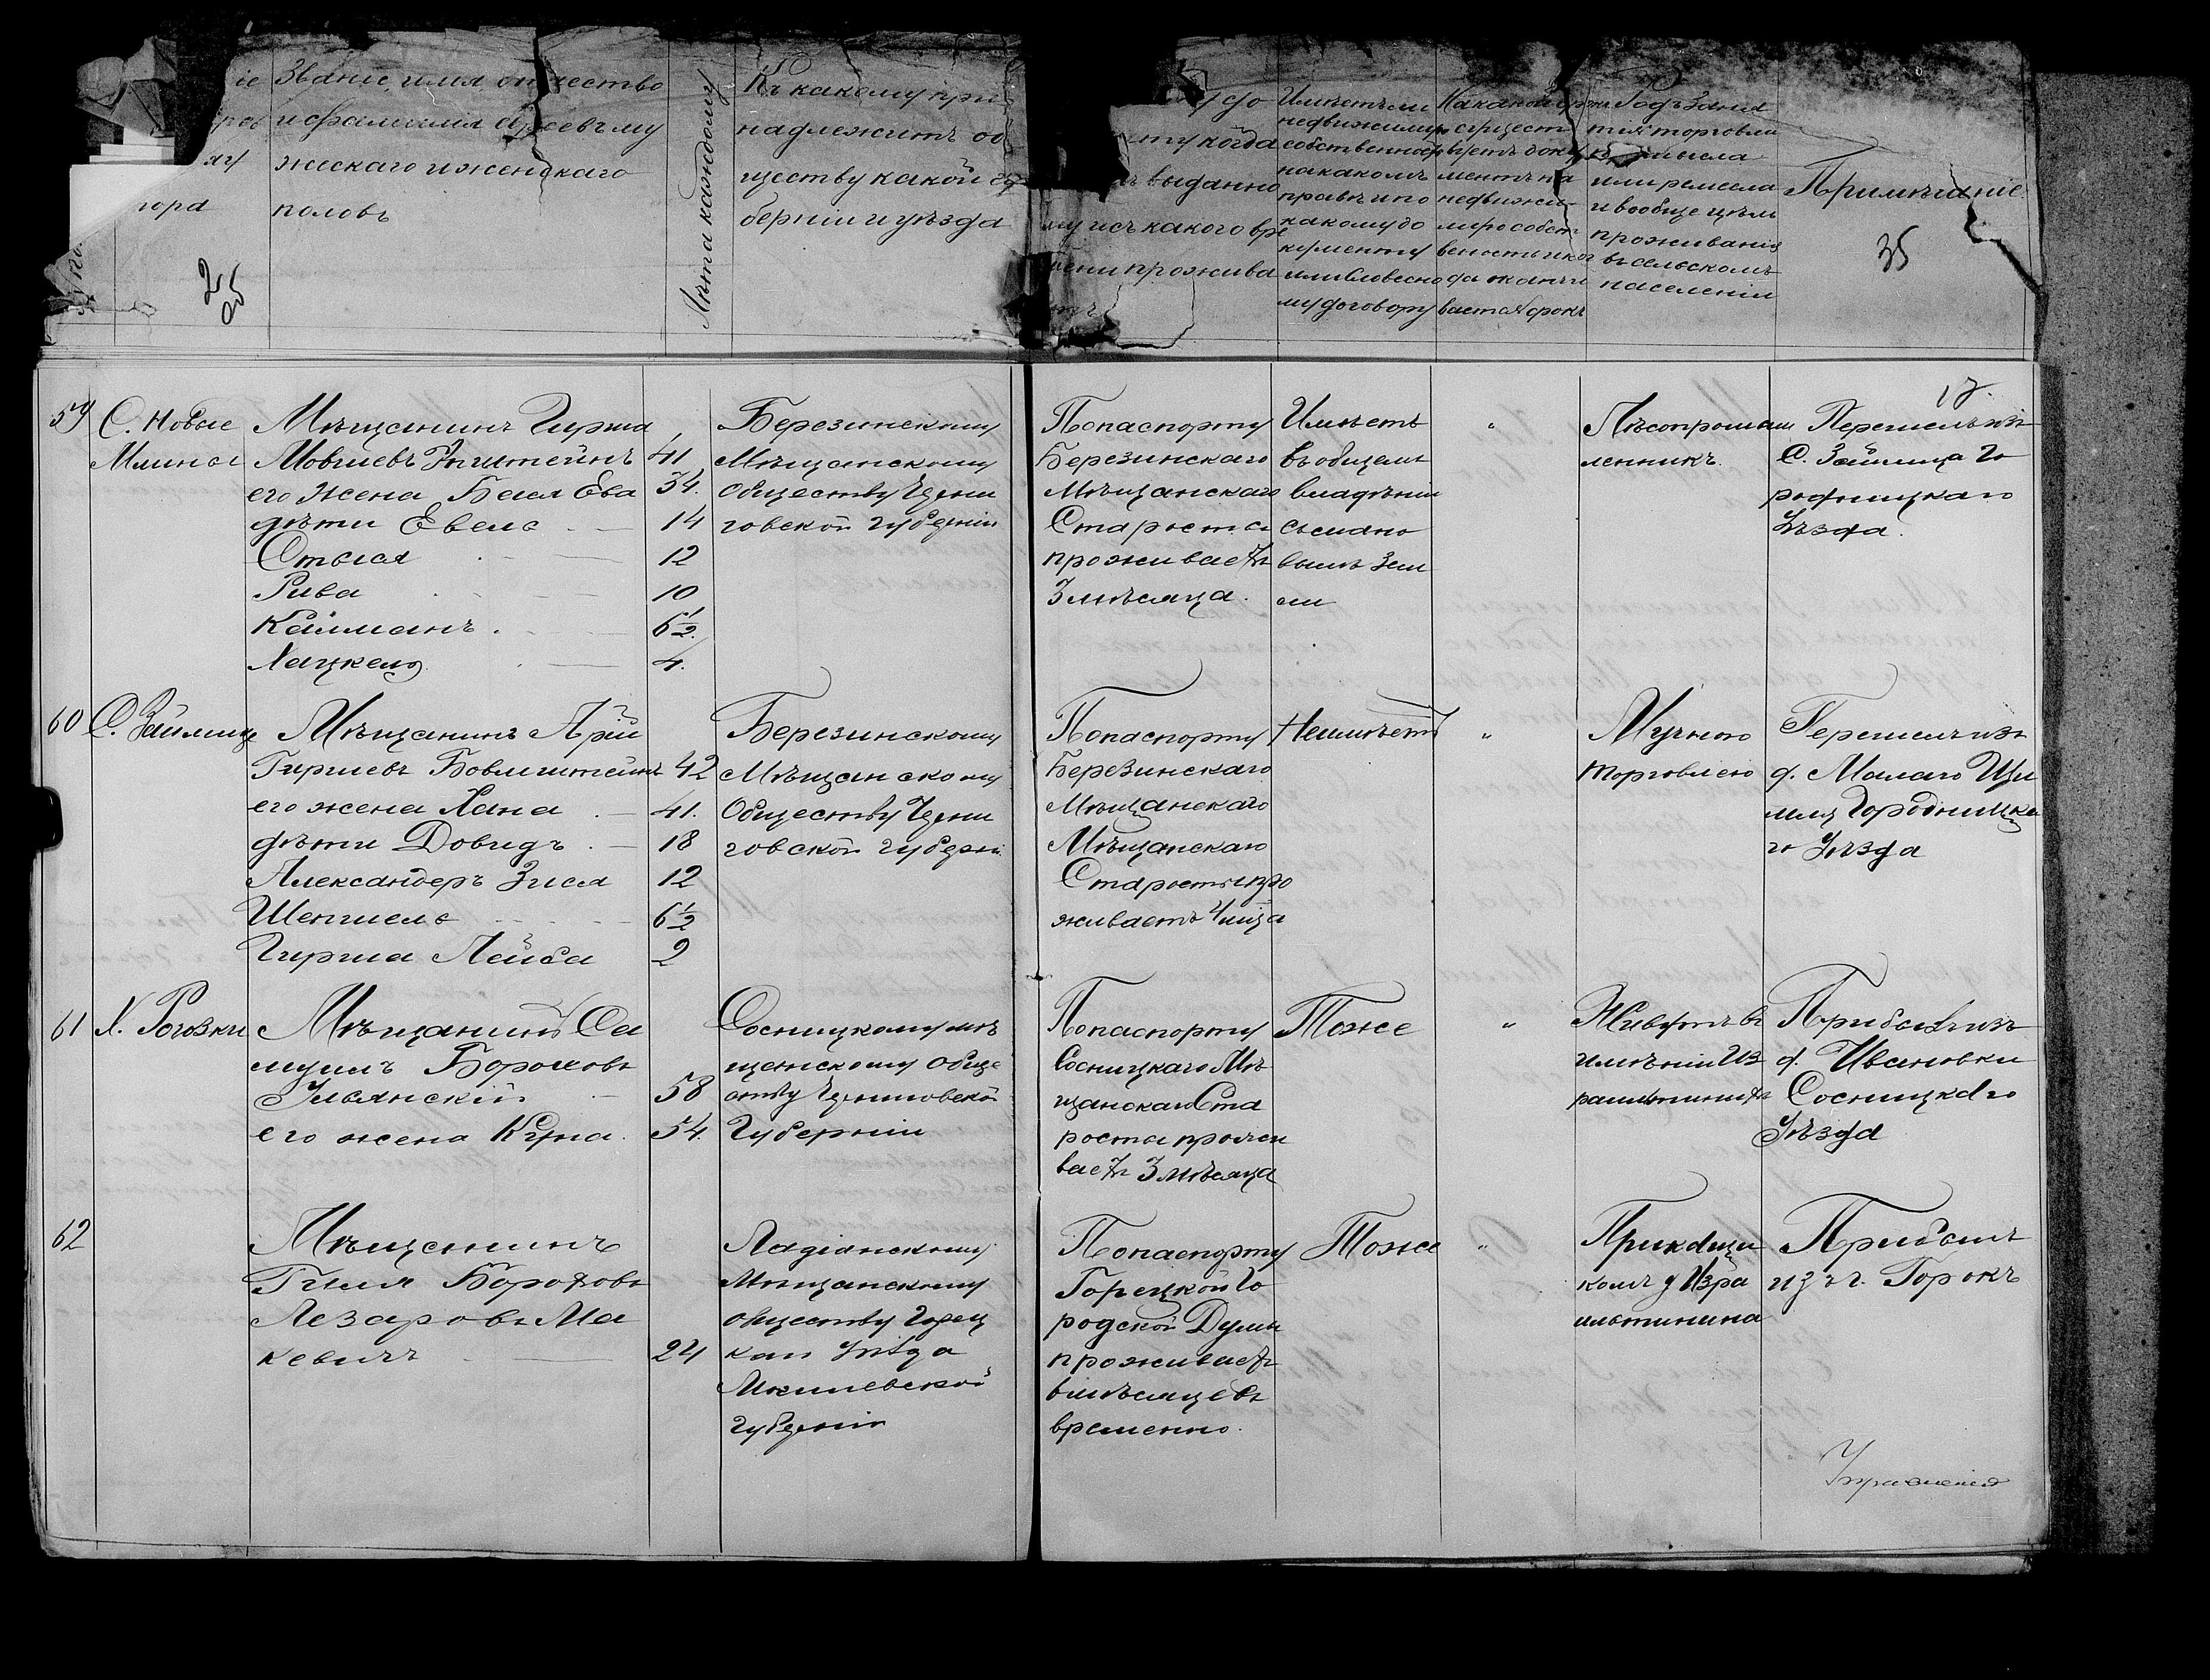 Званіе, имя отчество
и фамилія Евреевъ му
жескаго и женскаго
половъ
Лѣта каждому
Къ какому при
надлежитъ об
ществу какой гу
берніи и уѣзда
когда
выданно
му и съ какого вре
мени прожива
етъ
Имѣетъ ли
недвижимую
собственность
на какомъ
правѣ и по
какому до
кументу
или словесно
му договору
На какой срокъ
сущест
вуетъ доку
ментъ на
недвижи
мую собст
веность и ког
да оканчи
вается срокъ
Родъ заня
тія торговли
промысла
или ремесла
и вообще цѣль
проживанія
въ сельскомъ
населеніи
Примѣчаніе
35
25
17.
59
С. Новые
Млины
Мѣщанинъ Гирша
Мовшевъ Эпштейнъ 41
его жена Бася Ева 34.
дѣти Евель 14
Стыся 12
Рива 10
Калманъ 6½
Хацкель 4.
Березинскому
Мѣщанскому
Обществу Черни
говской губерніи
По паспорту
Березинскаго
Мѣщанскаго
Старосты
проживаетъ
3 мѣсяца.
Имѣетъ
въ общемъ
владѣніи
съ
вымъ Зем
"
Лѣсопромыш
ленникъ.
Перешелъ изъ
С. Займища Го
родницкаго
Уѣзда.
60
С. Займище
Мѣщанинъ Арій
Гиршевъ Бовмштейнъ 42
его жена Хана 41.
дѣти Довидъ 18
Александеръ Зися 12
Шепшель 6½
Гирша Лейба 2
Березинскому
Мѣщанскому
Обществу Черни
говской губерніи
По паспорту
Березинскаго
Мѣщанскаго
Мѣщанскаго
Старосты про
живаетъ 4 м-ца
Неимѣетъ
"
Мучною
торговлею
Перешелъ изъ
д. Малаго Щи
Городницка
го Уѣзда
61
Х. Роговки
Мѣщанинъ Са
муилъ Бороховъ
Ульянскій 58
его жена Куна 54.
Сосницкому мѣ
щанскому обще
ству Черниговской
Губерніи
По паспорту
Сосницкаго Мѣ
щанскаго Ста
роста прожи
ваетъ 3 мѣсяца
Тоже
"
Живутъ въ
имѣніи Из
раильтянина
Прибылъ изъ
д. Ивановки
Сосницкаго
Уѣзда
62
Мѣщанинъ
Гиля Бороховъ
Лезаровъ Ма
кевичъ 24
Лядіанскому
Мѣщанскому
обществу Горец
каго Уѣзда
Могилевской
губерніи
По паспорту
Горецкой Го
родской Думы
проживаетъ
временно.
Тоже
"
Прикащи
комъ у Изра
ильтянина
Прибылъ
изъ г. Горокъ